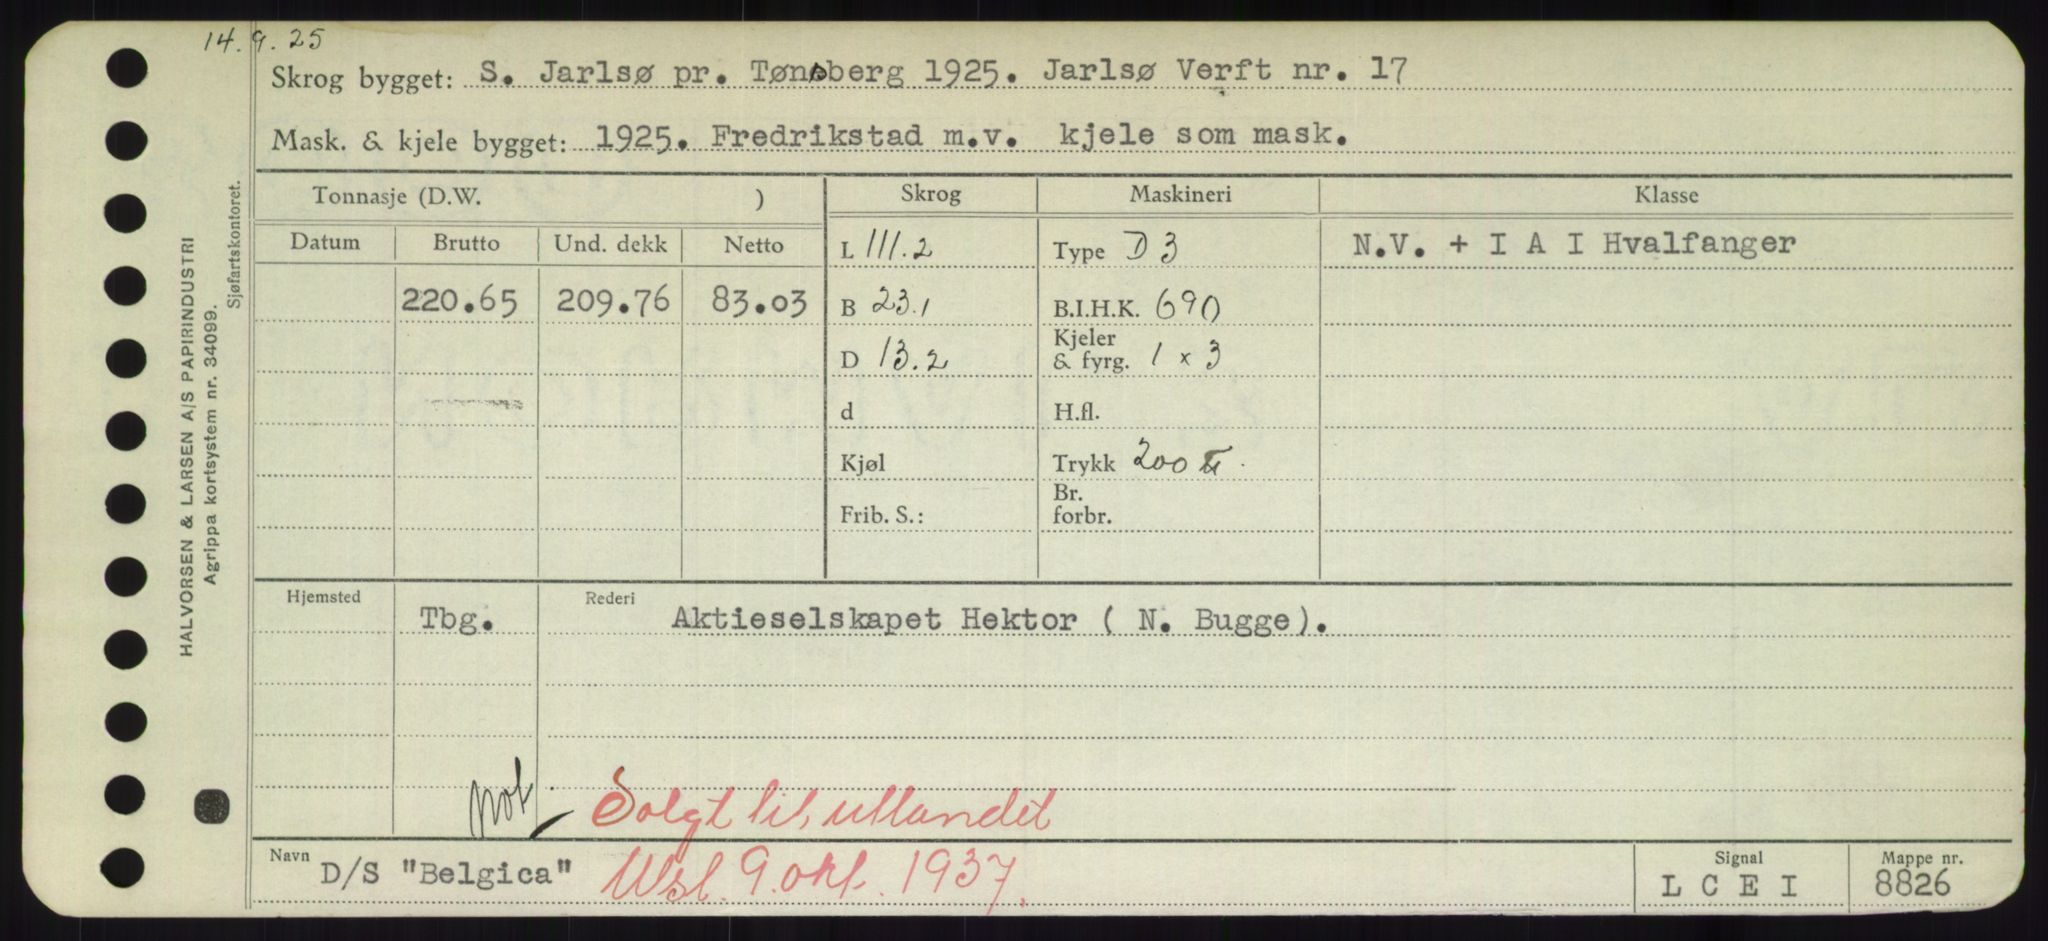 14.9.25
Skrog bygget: S. Jarlsø pr. Tønsberg 1925. Jarlsø Verft nr. 17
Mask. & kjele bygget: 1925. Fredrikstad m.v. kjele som mask.
HALVORSEN & LARSEN A/S PAPIRINDUSTRI
Agrippa kortsystem nr. 34099.
Sjøfartskontoret.
Tonnasje (D.W. ) Skrog Maskineri Klasse
Datum Brutto Und. dekk Netto L 111.2 Type D 3 N.V. + I A I Hvalfanger
220.65 209.76 83.03 B 23.1 B.I.H.K. 690
D 13.2 Kjeler & fyrg. 1 x 3
d H.fl.
Kjøl Trykk 200
Frib. S.: Br. forbr.
Hjemsted Tbg. Rederi Aktieselskapet Hektor ( N. Bugge).
not Solgt til utlandet
Navn D/S "Belgica" Utsl. 9. okt. 1937. Signal L C E I Mappe nr. 8826